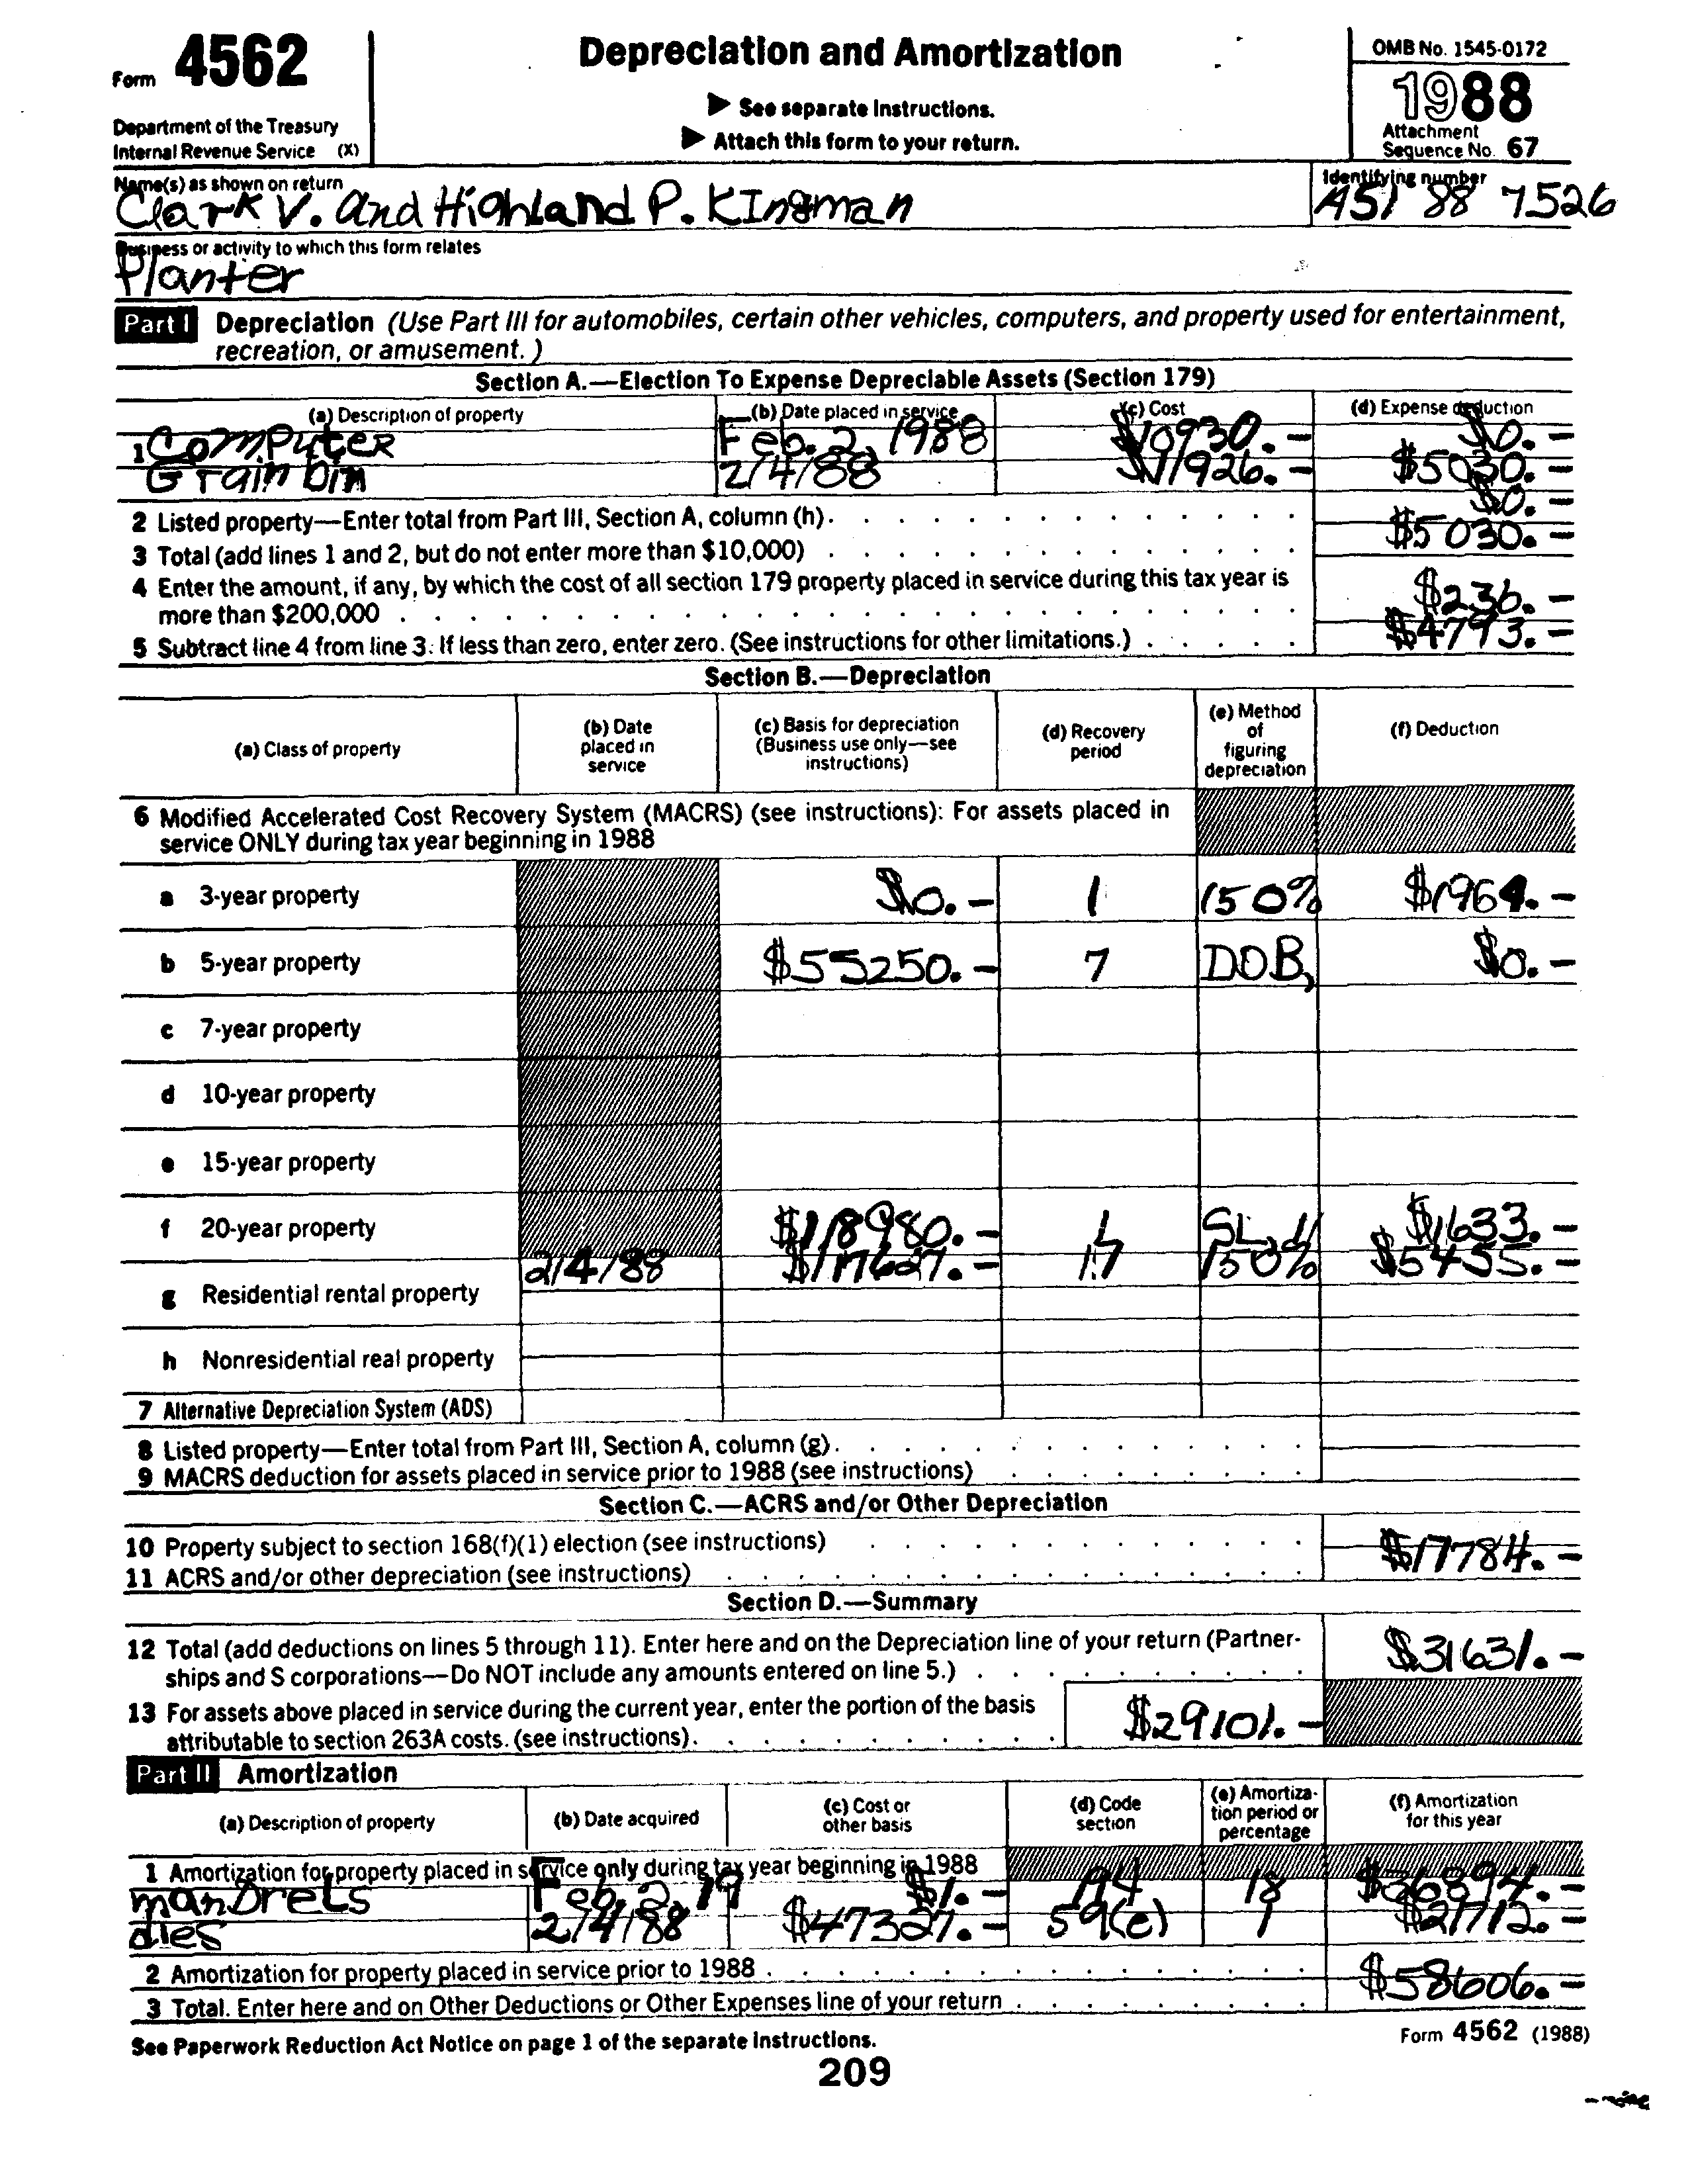 Form 4562
Department of the Treasury
Internal Revenue Service (X)
Depreciation and Amortization
▶ See separate Instructions.
▶ Attach this form to your return.
OMB No. 1545-0172
1988
Attachment
Sequence No. 67
Name(s) as shown on return
Clark V. and Highland P. KIngman
Identifying number
A51 88 7526
Business or activity to which this form relates
Planter
Part I Depreciation (Use Part III for automobiles, certain other vehicles, computers, and property used for entertainment,
recreation, or amusement.)
Section A.—Election To Expense Depreciable Assets (Section 179)
(a) Description of property (b) Date placed in service (c) Cost (d) Expense deduction
1 Computer Feb. 2, 1988 $10930.- $0.-
Grain bin 2/4/88 $11926.- $5030.-
2 Listed property—Enter total from Part III, Section A, column (h). $0.-
3 Total (add lines 1 and 2, but do not enter more than $10,000) $5030.-
4 Enter the amount, if any, by which the cost of all section 179 property placed in service during this tax year is
more than $200,000 $236.-
5 Subtract line 4 from line 3. If less than zero, enter zero. (See instructions for other limitations.) $4793.-
Section B.—Depreciation
(a) Class of property (b) Date placed in service (c) Basis for depreciation (Business use only—see instructions) (d) Recovery period (e) Method of figuring depreciation (f) Deduction
6 Modified Accelerated Cost Recovery System (MACRS) (see instructions): For assets placed in
service ONLY during tax year beginning in 1988
a 3-year property $0.- 1 150% $1964.-
b 5-year property $55250.- 7 DOB, $0.-
c 7-year property
d 10-year property
e 15-year property
f 20-year property $118980.- 1 SL, $1633.-
2/4/88 $117627.- 17 150% $5455.-
g Residential rental property
h Nonresidential real property
7 Alternative Depreciation System (ADS)
8 Listed property—Enter total from Part III, Section A, column (g).
9 MACRS deduction for assets placed in service prior to 1988 (see instructions)
Section C.—ACRS and/or Other Depreciation
10 Property subject to section 168(f)(1) election (see instructions)
$17784.-
11 ACRS and/or other depreciation (see instructions)
Section D.—Summary
12 Total (add deductions on lines 5 through 11). Enter here and on the Depreciation line of your return (Partner-
ships and S corporations—Do NOT include any amounts entered on line 5.) $31631.-
13 For assets above placed in service during the current year, enter the portion of the basis
attributable to section 263A costs. (see instructions). $29101.-
Part II Amortization
(a) Description of property (b) Date acquired (c) Cost or other basis (d) Code section (e) Amortization period or percentage (f) Amortization for this year
1 Amortization for property placed in service only during tax year beginning in 1988
manDrels Feb. 2, 19 $1.- 194 18 $36894.-
dies 2/4/88 $47327.- 59(e) 1 $21712.-
2 Amortization for property placed in service prior to 1988
$58606.-
3 Total. Enter here and on Other Deductions or Other Expenses line of your return
See Paperwork Reduction Act Notice on page 1 of the separate instructions.
Form 4562 (1988)
209